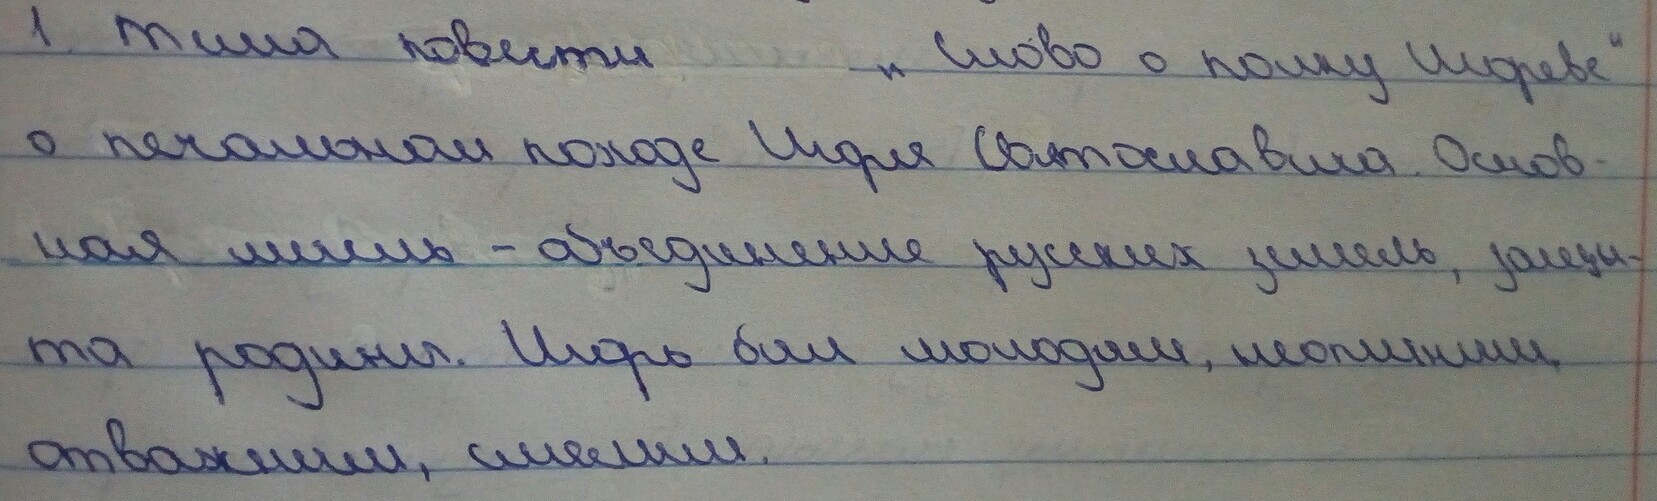 1. Тема повести „Слово о полку Игореве"
о печальном походе Игоря Святославича. Основ-
ная мысль - объединение русских земель, защи-
та родины. Игорь был молодым, неопытным,
отважным, смелым.